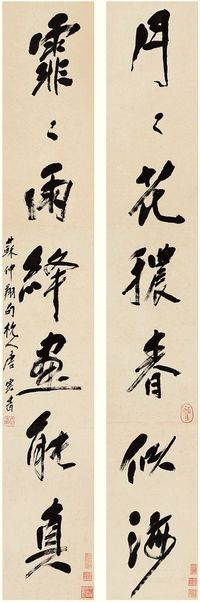 冉〻花穠春似海
霏〻雨絳畫能真
蘇仲翔句杭人唐雲書